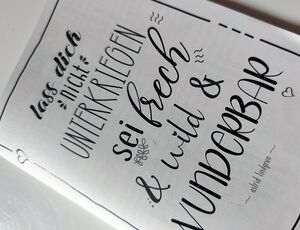 lass dich
NICHT
UNTERKRIEGEN
sei frech
& wild &
WUNDERBAR
~ astrid lindgren ~